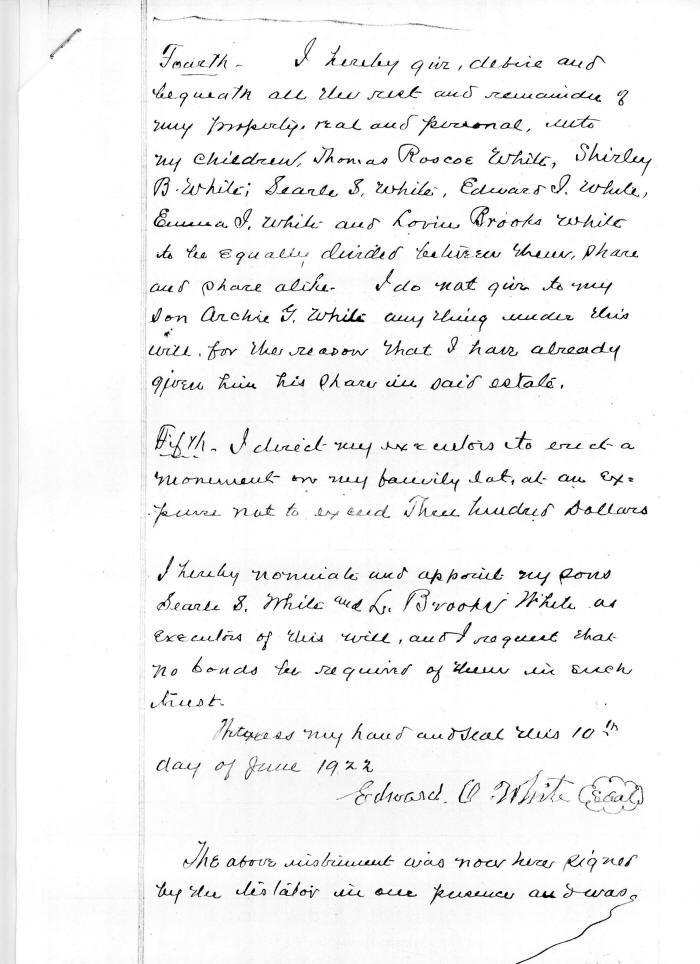 Fourth - I hereby give, devise and
bequeath all the rest and remainder of
my property, real and personal, unto
my children, Thomas Roscoe White, Shirley
B. White; Searle S. White, Edward I. White,
Emma I. White and Lovin Brooks White
to be equally divided between them, share
and share alike - I do not give to my
son Archie G. White anything under this
will, for the reason that I have already
given him his share in said estate.
Fifth - I direct my executors to erect a
monument on my family lot, at an ex=
pense not to exceed Three hundred Dollars
I hereby nominate and appoint my sons
Searle S. White and L. Brooks White as
executors of this will, and I request that
no bonds be required of them in such
trust.
Witness my hand and seal this 10th
day of June 1922
Edward O. White (Seal)
The above instrument was now here signed
by the testator in our presence and was